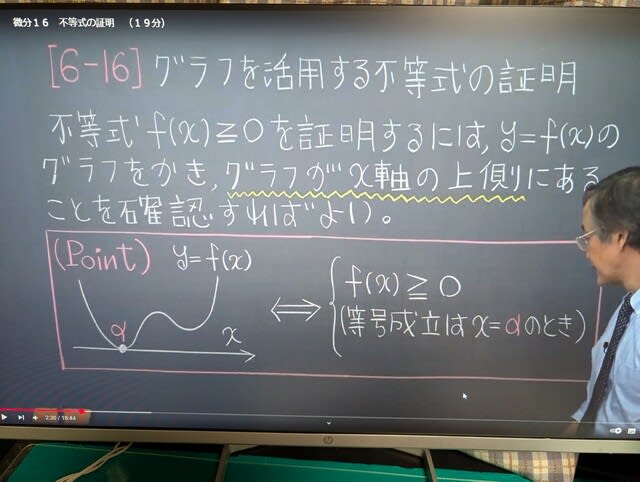 微分16 不等式の証明 (19分)
[6-16] グラフを活用する不等式の証明
不等式 f(x)≧0 を証明するには, y=f(x)の
グラフをかき, グラフがx軸の上側にある
ことを確認すればよい。
(Point) y=f(x)
α
x
⇔
f(x)≧0
(等号成立は x=αのとき)
2:30 / 18:44
hp